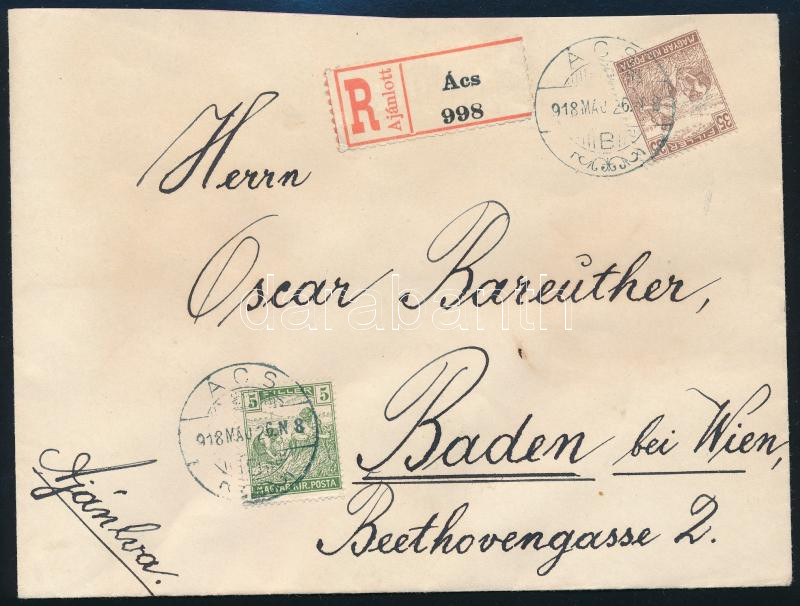 R
Ajánlott
Ács
998
ACS
918 MÁJ 26. N 8
B
MAGYAR KIR. POSTA
35 FILLÉR 35
Herrn
Oscar Bareuther,
darabanth
ACS
918 MÁJ 26. N 8
5 FILLÉR 5
MAGYAR KIR. POSTA
Baden bei Wien,
Beethovengasse 2.
Ajánlva.